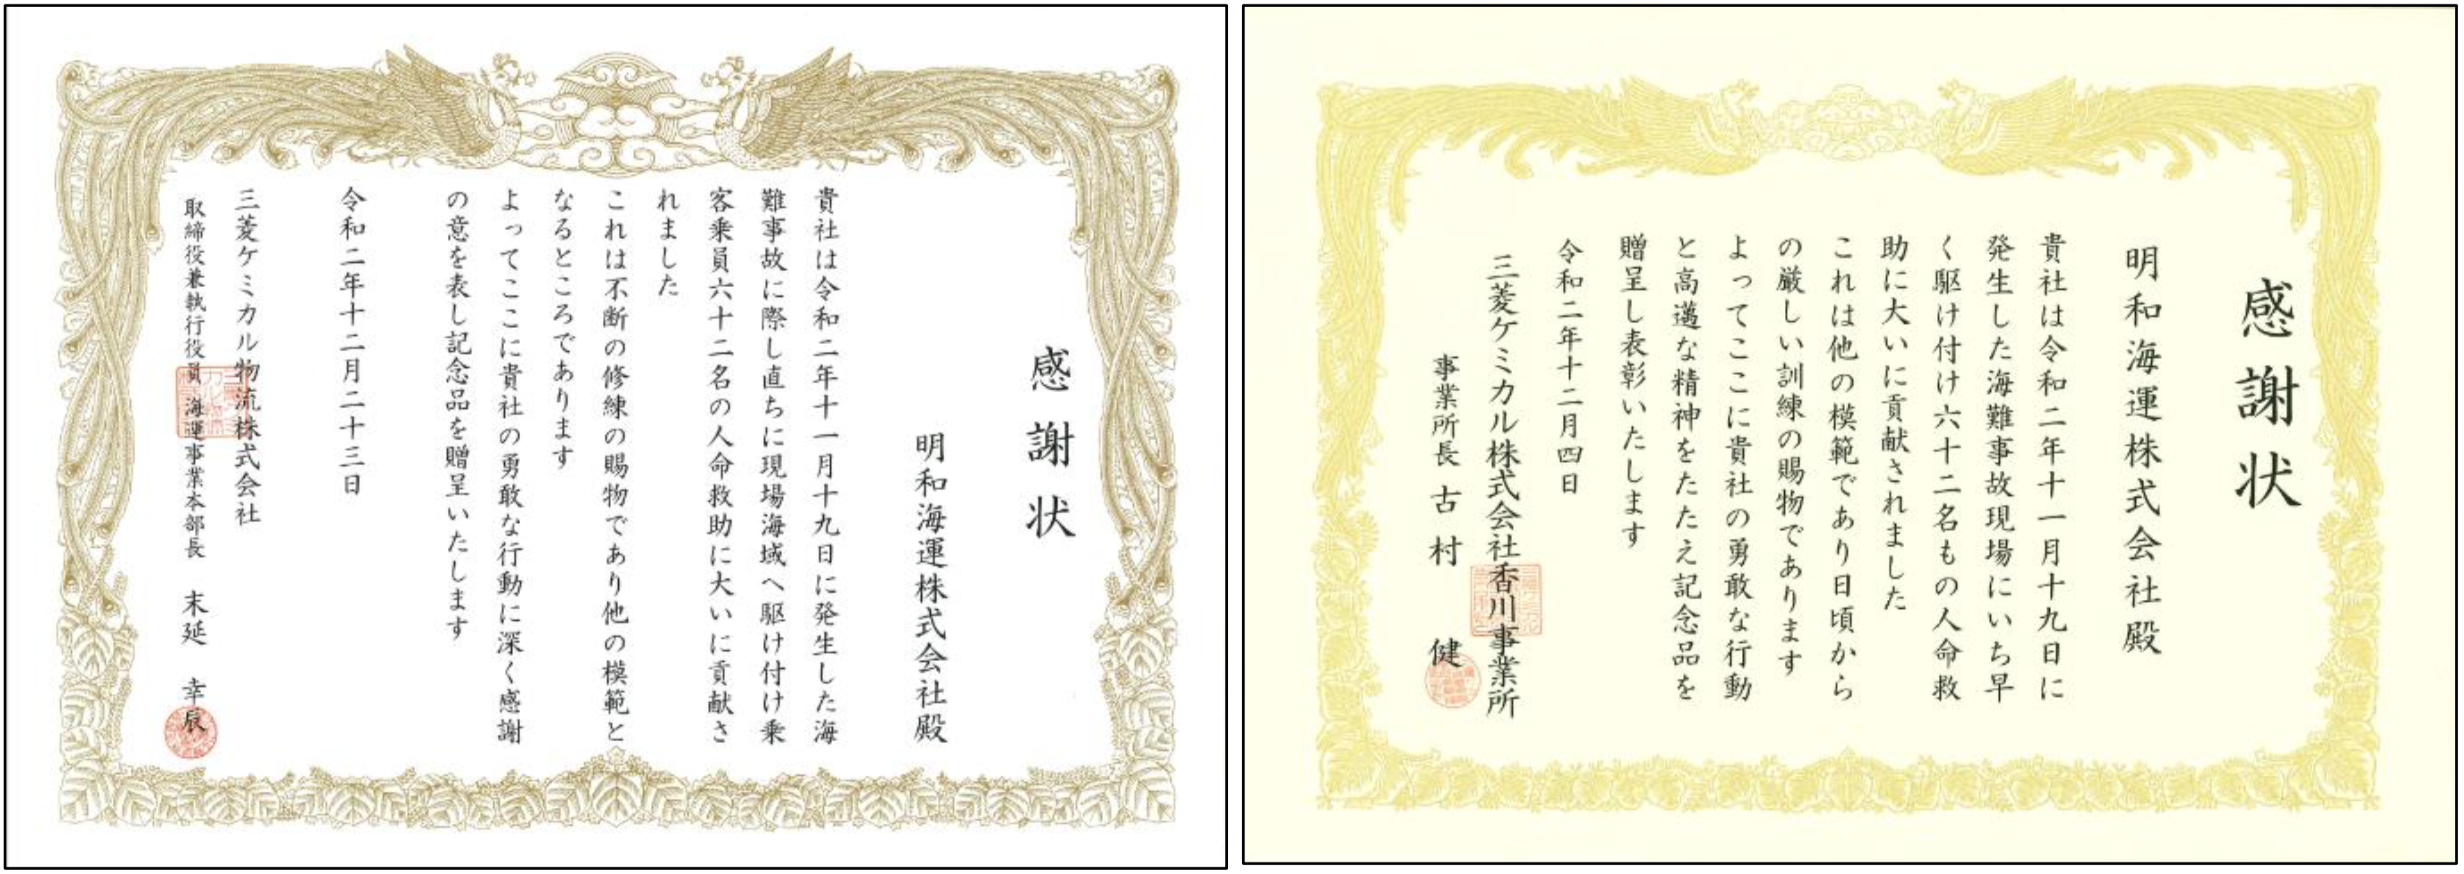 感謝状
明和海運株式会社殿
貴社は令和二年十一月十九日に発生した海
難事故に際し直ちに現場海域へ駆け付け乗
客乗員六十二名の人命救助に大いに貢献さ
れました
これは不断の修練の賜物であり他の模範と
なるところであります
よってここに貴社の勇敢な行動に深く感謝
の意を表し記念品を贈呈いたします
令和二年十二月二十三日
三菱ケミカル物流株式会社
取締役兼執行役員 海運事業本部長 末延 幸辰
感謝状
明和海運株式会社殿
貴社は令和二年十一月十九日に
発生した海難事故現場にいち早
く駆け付け六十二名もの人命救
助に大いに貢献されました
これは他の模範であり日頃から
の厳しい訓練の賜物であります
よってここに貴社の勇敢な行動
と高邁な精神をたたえ記念品を
贈呈し表彰いたします
令和二年十二月四日
三菱ケミカル株式会社香川事業所
事業所長 古村 健